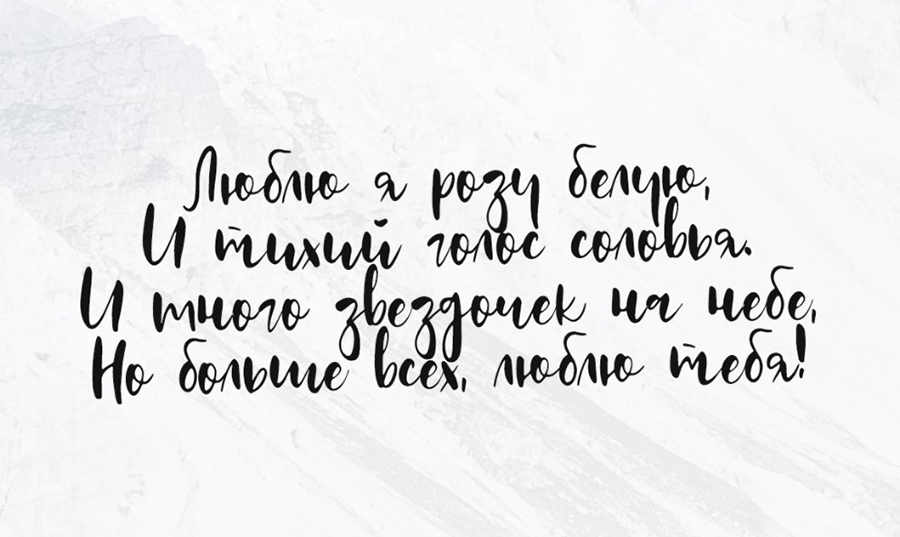 Люблю я розу белую,
И тихий голос соловья.
И много звездочек на небе,
Но больше всех, люблю тебя!